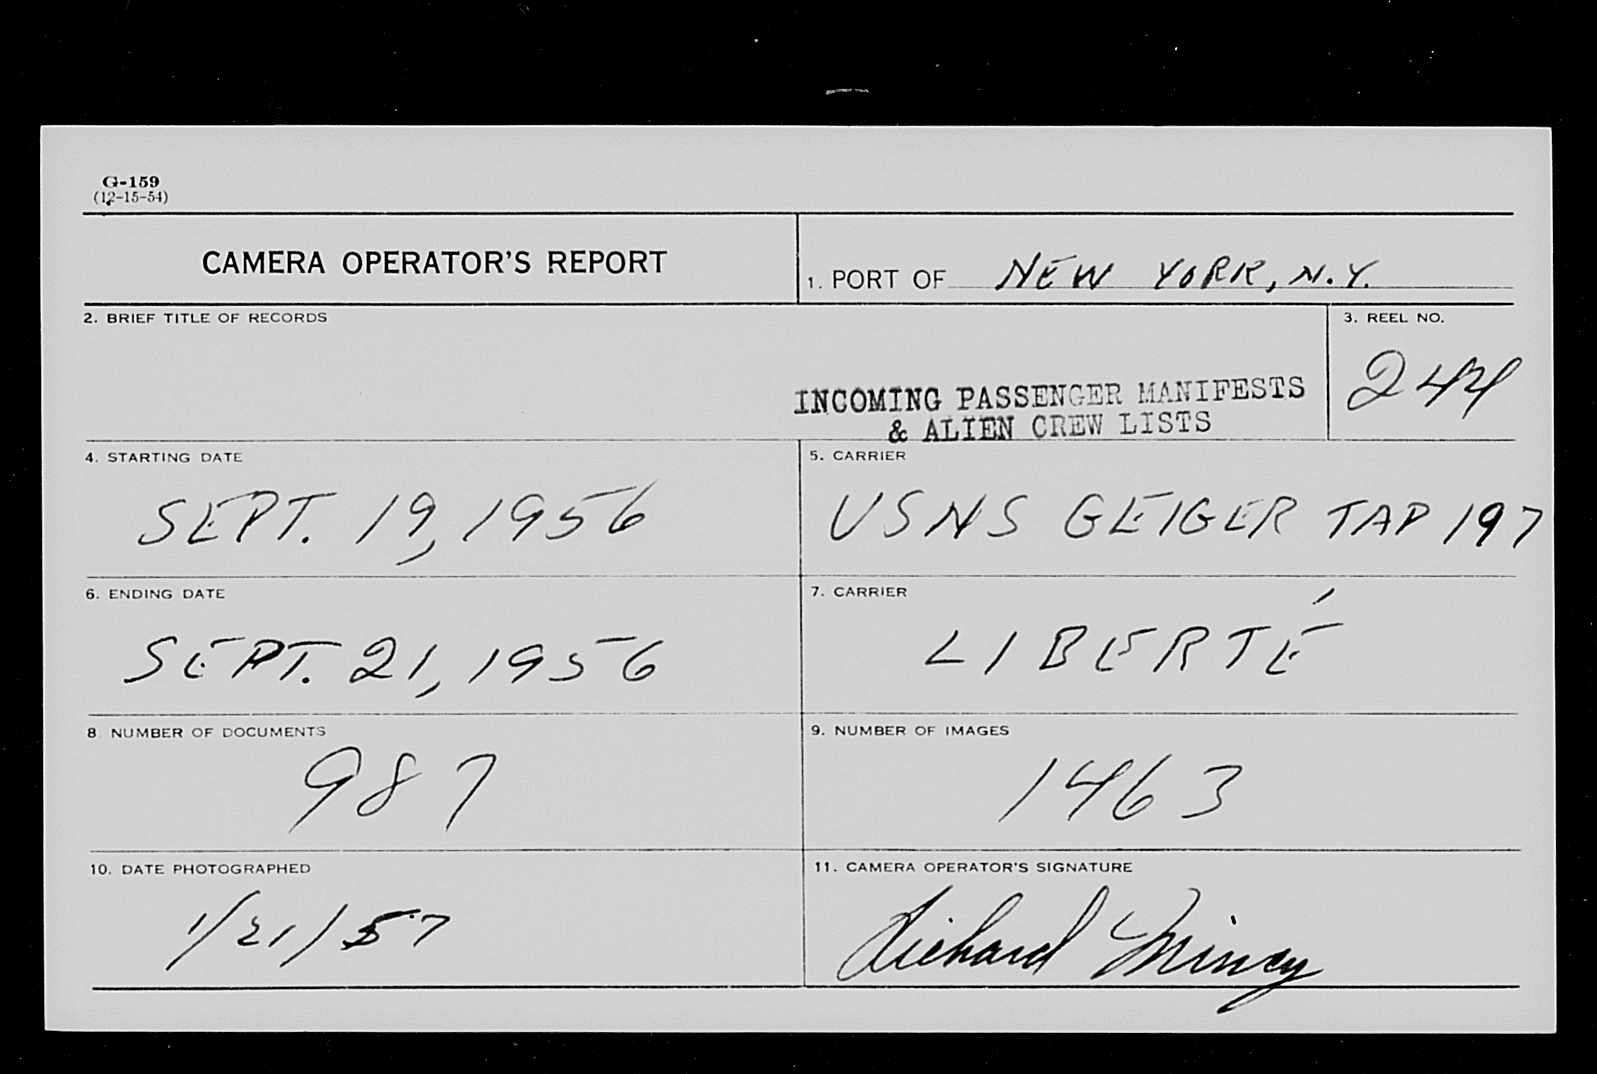 G-159
(12-15-54)
CAMERA OPERATOR'S REPORT
1. PORT OF NEW YORK, N.Y.
2. BRIEF TITLE OF RECORDS
INCOMING PASSENGER MANIFESTS
& ALIEN CREW LISTS
3. REEL NO.
244
4. STARTING DATE
SEPT. 19, 1956
5. CARRIER
USNS GEIGER TAP 197
6. ENDING DATE
SEPT. 21, 1956
7. CARRIER
LIBERTÉ
8. NUMBER OF DOCUMENTS
987
9. NUMBER OF IMAGES
1463
10. DATE PHOTOGRAPHED
1/21/57
11. CAMERA OPERATOR'S SIGNATURE
Richard Mincy